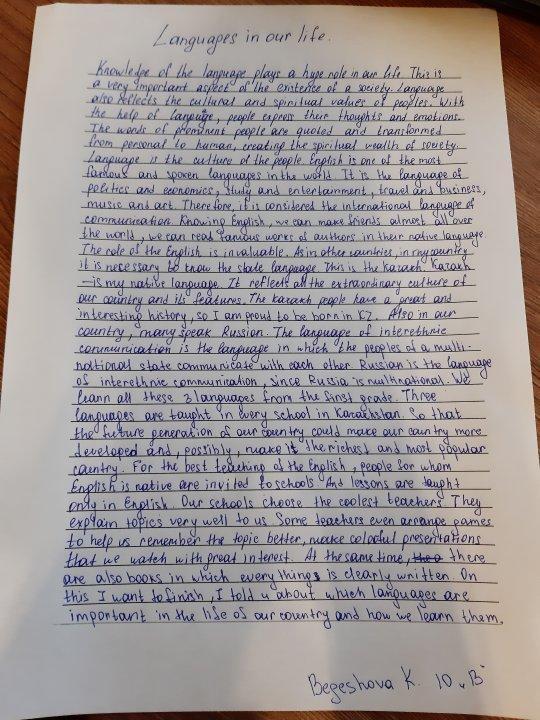 Languages in our life.
Knowledge of the language plays a huge role in our life. This is
a very important aspect of the existence of a society. Language
also reflects the cultural and spiritual values of peoples. With
the help of language, people express their thoughts and emotions.
The words of prominent people are quoted and transformed
from personal to human, creating the spiritual wealth of society.
Language is the culture of the people. English is one of the most
famous and spoken languages in the world. It is the language of
politics and economics, study and entertainment, travel and business,
music and art. Therefore, it is considered the international language of
communication. Knowing English, we can make friends almost all over
the world, we can read famous works of authors in their native language.
The role of the English is invaluable. As in other countries, in my country
it is necessary to know the state language. This is the kazakh. Kazakh
– is my native language. It reflects all the extraordinary culture of
our country and its features. The kazakh people have a great and
interesting history, so I am proud to be born in KZ. Also in our
country, many speak Russian. The language of interethnic
communication is the language in which the peoples of a multi-
national state communicate with each other. Russian is the language
of interethnic communication, since Russia is multinational. We
learn all these 3 languages from the first grade. Three
languages are taught in every school in Kazakhstan. So that
the future generation of our country could make our country more
developed and, possibly, make it the richest and most popular
country. For the best teaching of the English, people for whom
English is native are invited to schools. And lessons are taught
only in English. Our schools choose the coolest teachers. They
explain topics very well to us. Some teachers even arrange games
to help us remember the topic better, make colorful presentations
that we watch with great interest. At the same time, there
are also books in which everything is clearly written. On
this I want to finish, I told u about which languages are
important in the life of our country and how we learn them.
Begeshova K. 10 "B"